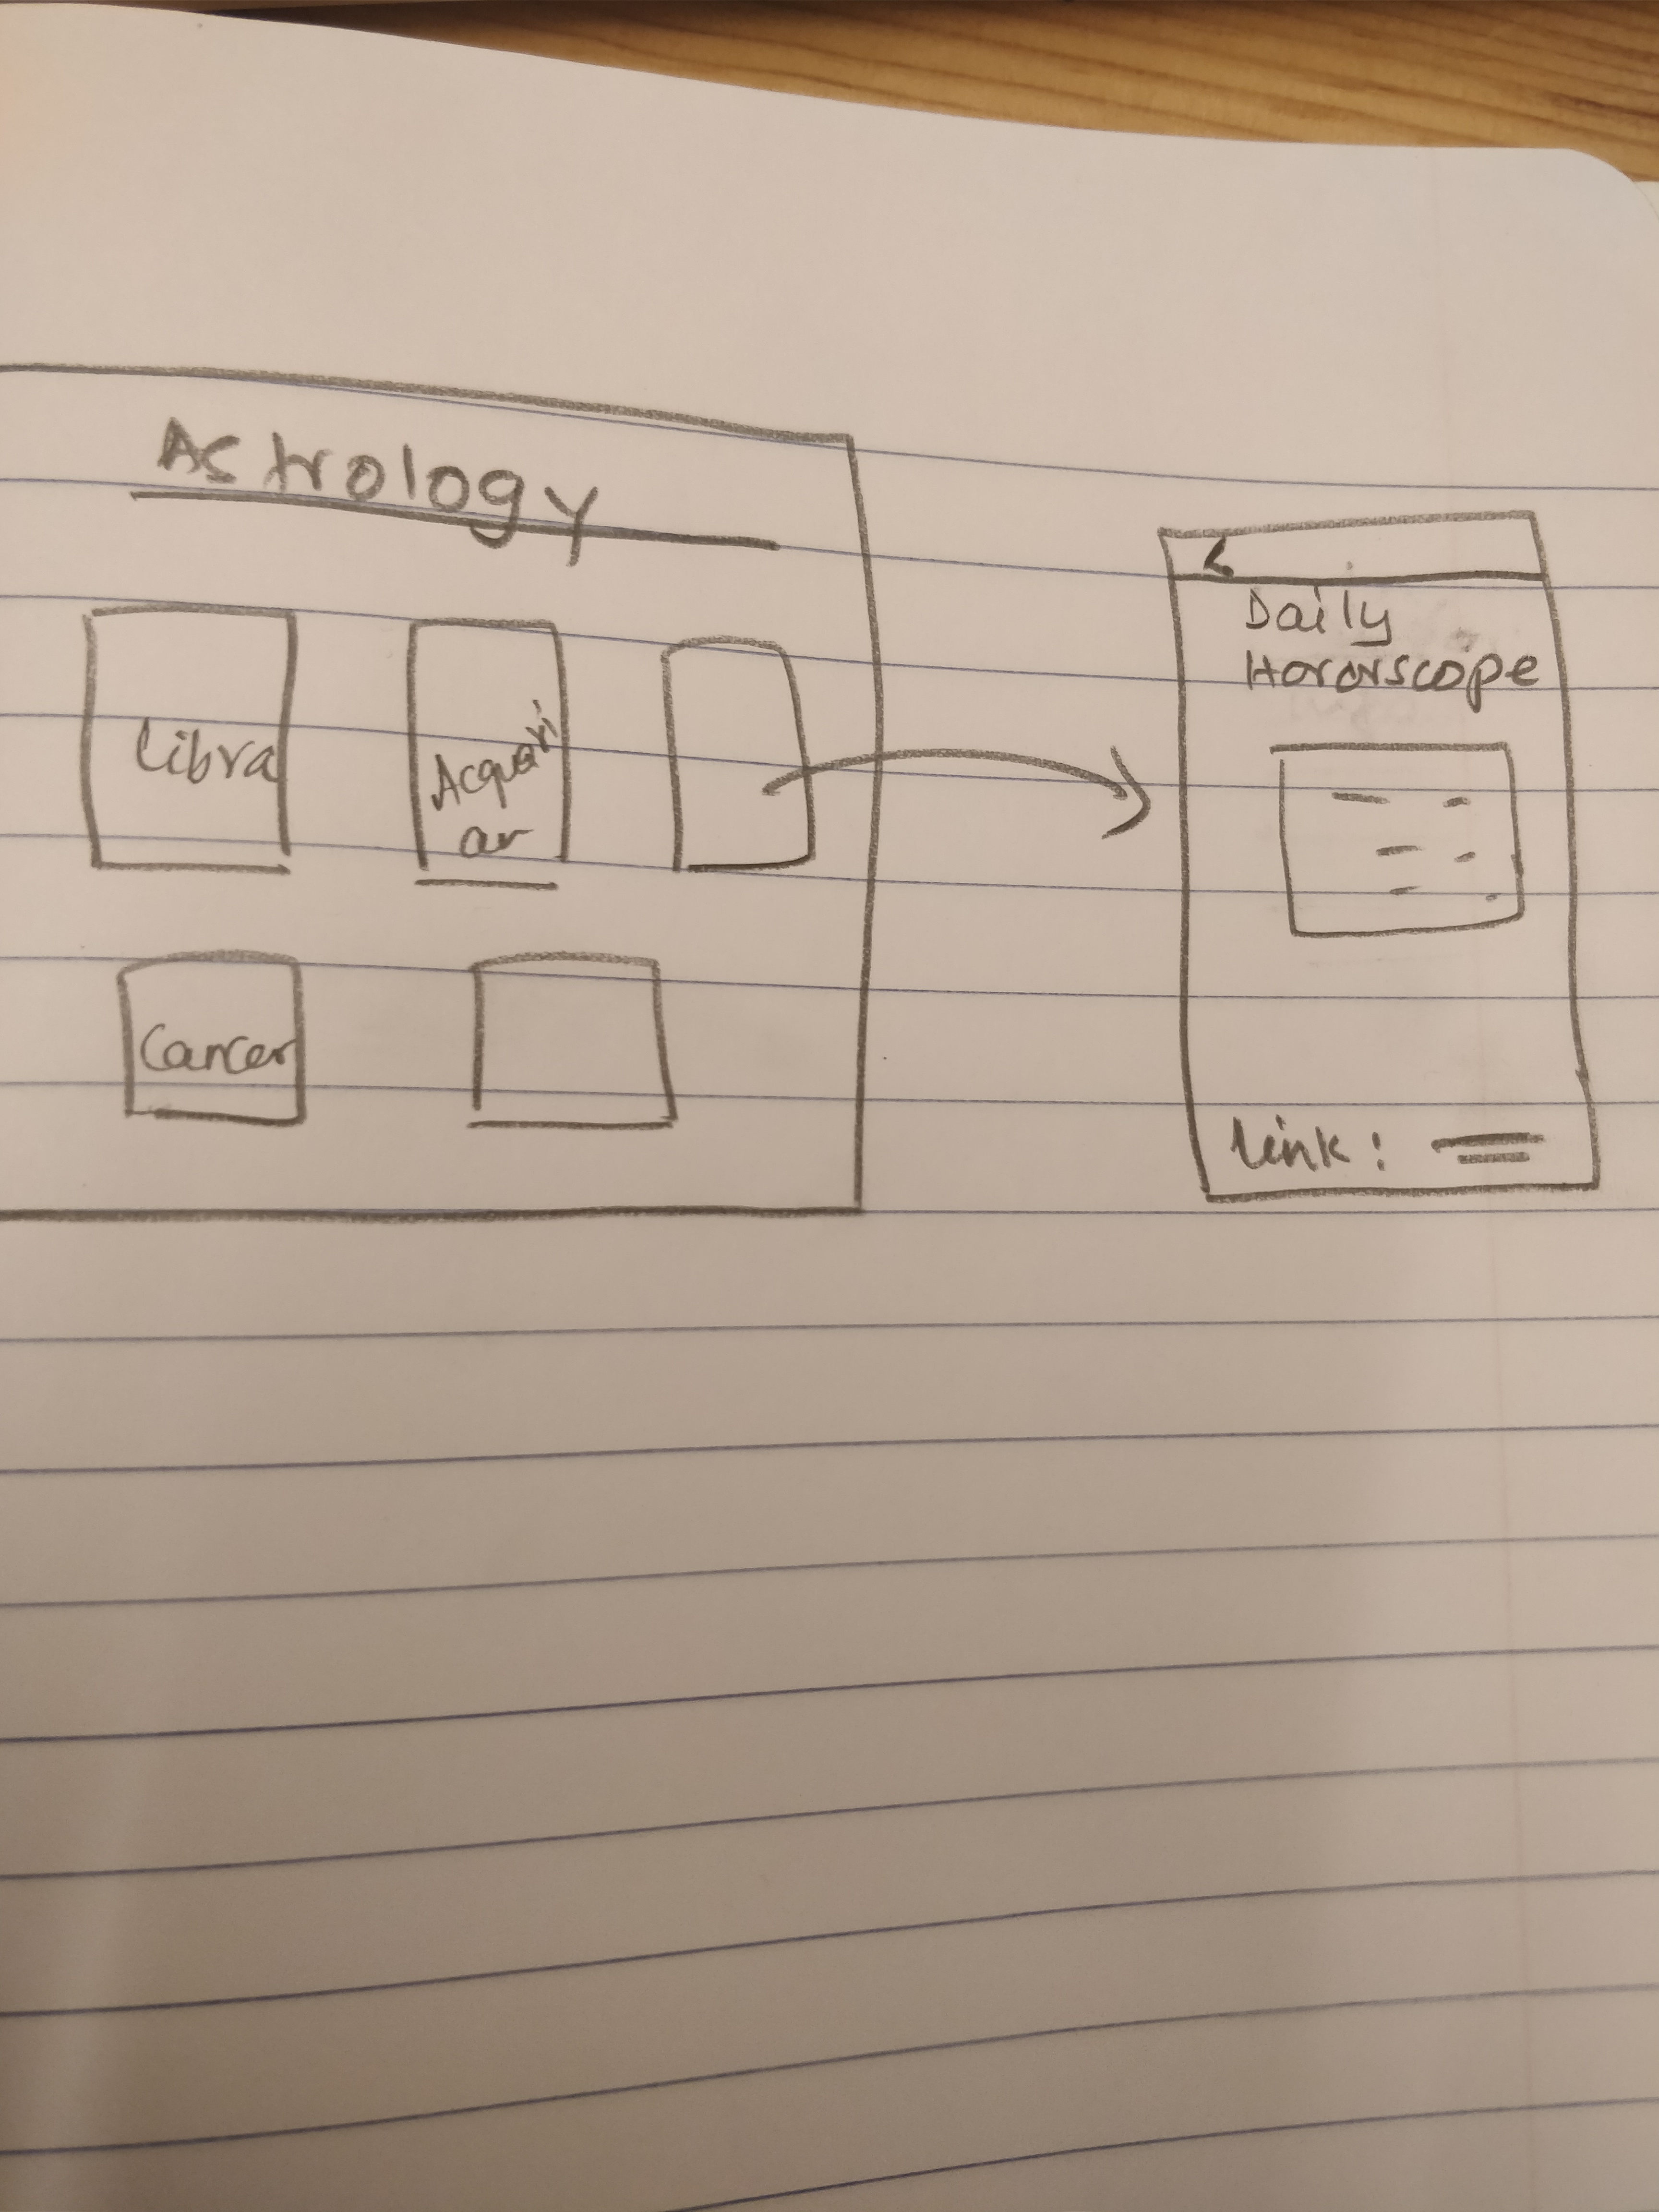 Astrology
Libra
Acquari
an
Cancer
<
Daily
Hororscope
Link :